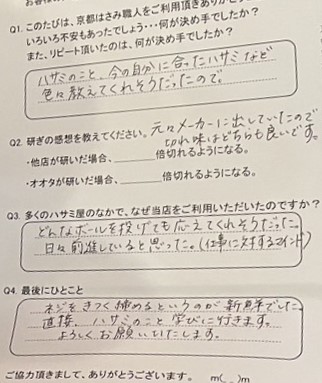 Q1. このたびは、京都はさみ職人をご利用頂きありがとう
いろいろ不安もあったでしょう・・・何が決め手でしたか？
また、リピート頂いたのは、何が決め手でしたか？
ハサミのこと、今の自分に合ったハサミなど
色々教えてくれそうだったので。
Q2. 研ぎの感想を教えてください。元々メーカーに出していたので
切れ味はどちらも良いです。
・他店が研いだ場合、______倍切れるようになる。
・オオタが研いだ場合、______倍切れるようになる。
Q3. 多くのハサミ屋のなかで、なぜ当店をご利用いただいたのですか？
どんなボールを投げても応えてくれそうだった。
日々前進していると思った。(仕事に対するマインド)
Q4. 最後にひとこと
ネジをきつく締めるというのが新鮮でした。
直接、ハサミのこと学びに行きます。
よろしくお願いいたします。
ご協力頂きまして、ありがとうございます。 m(_ _)m